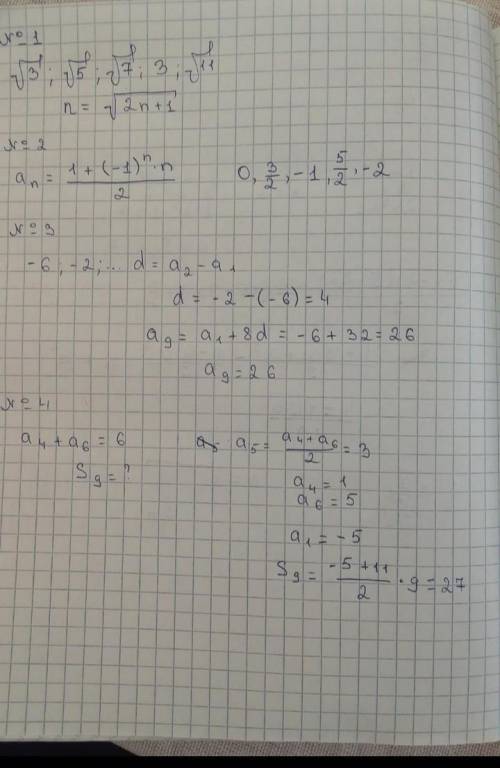 № 1
√3 ; √5 ; √7 ; 3 ; √11
n = √2n+1
№ 2
aₙ = (1 + (-1)ⁿ · n)/2    0, 3/2, -1, 5/2, -2
№ 3
-6 ; -2 ; ... d = a₂ - a₁
d = -2 - (-6) = 4
a₉ = a₁ + 8d = -6 + 32 = 26
a₉ = 26
№ 4
a₄ + a₆ = 6    a₅ = (a₄ + a₆)/2 = 3
S₉ = ?
a₄ = 1
a₆ = 5
a₁ = -5
S₉ = (-5 + 11)/2 · 9 = 27